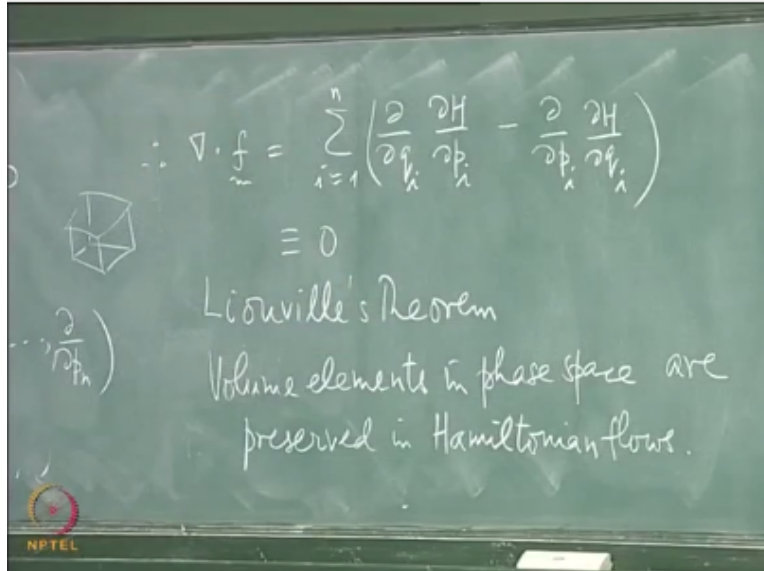 ∴ ∇ · f = n∑i=1 (∂/∂qᵢ ∂H/∂pᵢ − ∂/∂pᵢ ∂H/∂qᵢ)
≡ 0
Liouville's Theorem
..., ∂/∂pₙ)
Volume elements in phase space are
preserved in Hamiltonian flows.
NPTEL